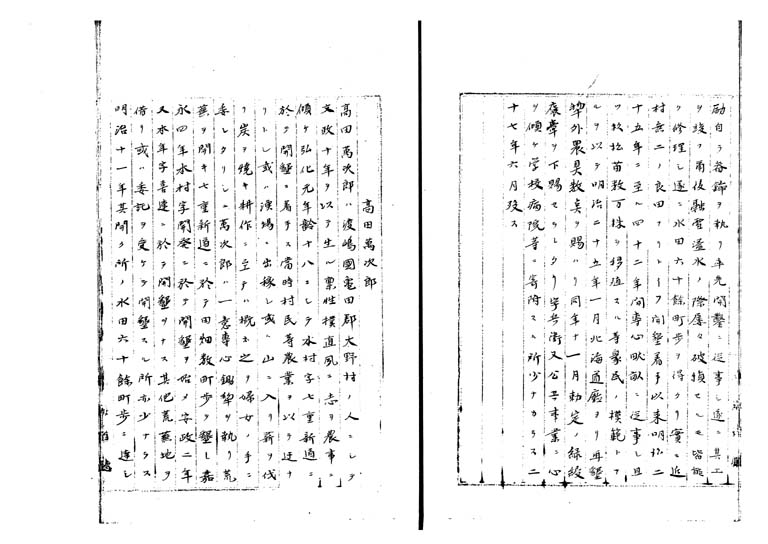 励自ラ畚鍤ヲ執リ率先開鑿ニ従事シ遂ニ其工
ヲ竣ヘ爾後融雪溢水ノ際屡々破損セシモ皆能
ク修理シ遂ニ水田六十餘町歩ヲ得タリ実ニ近
村無二ノ良田ナリトイフ開墾着手以来明治二
十五年ニ至ル四十二年間専心畎畝ニ従事シ且
ツ杉松苗数万株ヲ移植スル等農民ノ模範トナ
ルヲ以テ明治二十五年一月北海道廳ヨリ再墾
犂外農具数点ヲ賜ハリ同年十一月勅定ノ緑綬
褒章ヲ下賜セラレタリ常ニ公共事業ニ心
ヲ傾ケ学校病院等ニ寄附スル所少ナカラス二
十七年六月歿ス
高田萬次郎
高田萬次郎ハ渡嶋國亀田郡大野村ノ人ニシテ
文政十年ヲ以テ生ル禀性樸直夙ニ志ヲ農事ニ
傾ケ弘化元年齢十八ニシテ本村字七重新道ニ
於テ開墾ニ着手ス當時村民等農業ヲ以テ迂ナ
リトシ或ハ漁場ニ出稼シ或ハ山ニ入リ薪ヲ伐
リ炭ヲ焼キ耕作ニ至テハ概ネ之ヲ婦女ノ手ニ
委シタリシニ萬次郎ハ一意専心鋤犂ヲ執リ荒
蕪ヲ開キ七重新道ニ於テ田畑数町歩ヲ墾シ嘉
永四年本村字開発ニ於テ開墾ヲ始メ安政二年
又本年字喜連ニ於テ開墾ヲナス其他荒蕪地ヲ
借リ或ハ委託ヲ受ケテ開墾スル所亦少ナラス
明治十一年其開ク所ノ水田六十餘町歩ニ達シ